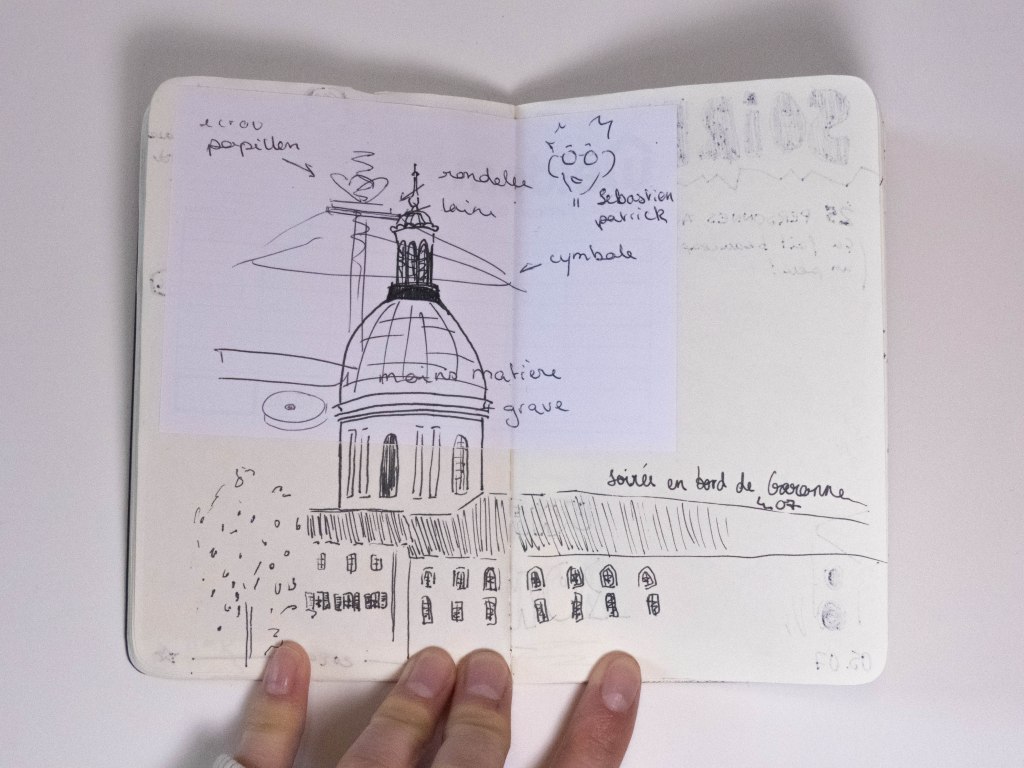 ecrou
papillon
rondelle
laine
Sebastien
patrick
cymbale
moins matière
grave
soirée en bord de Garonne
07